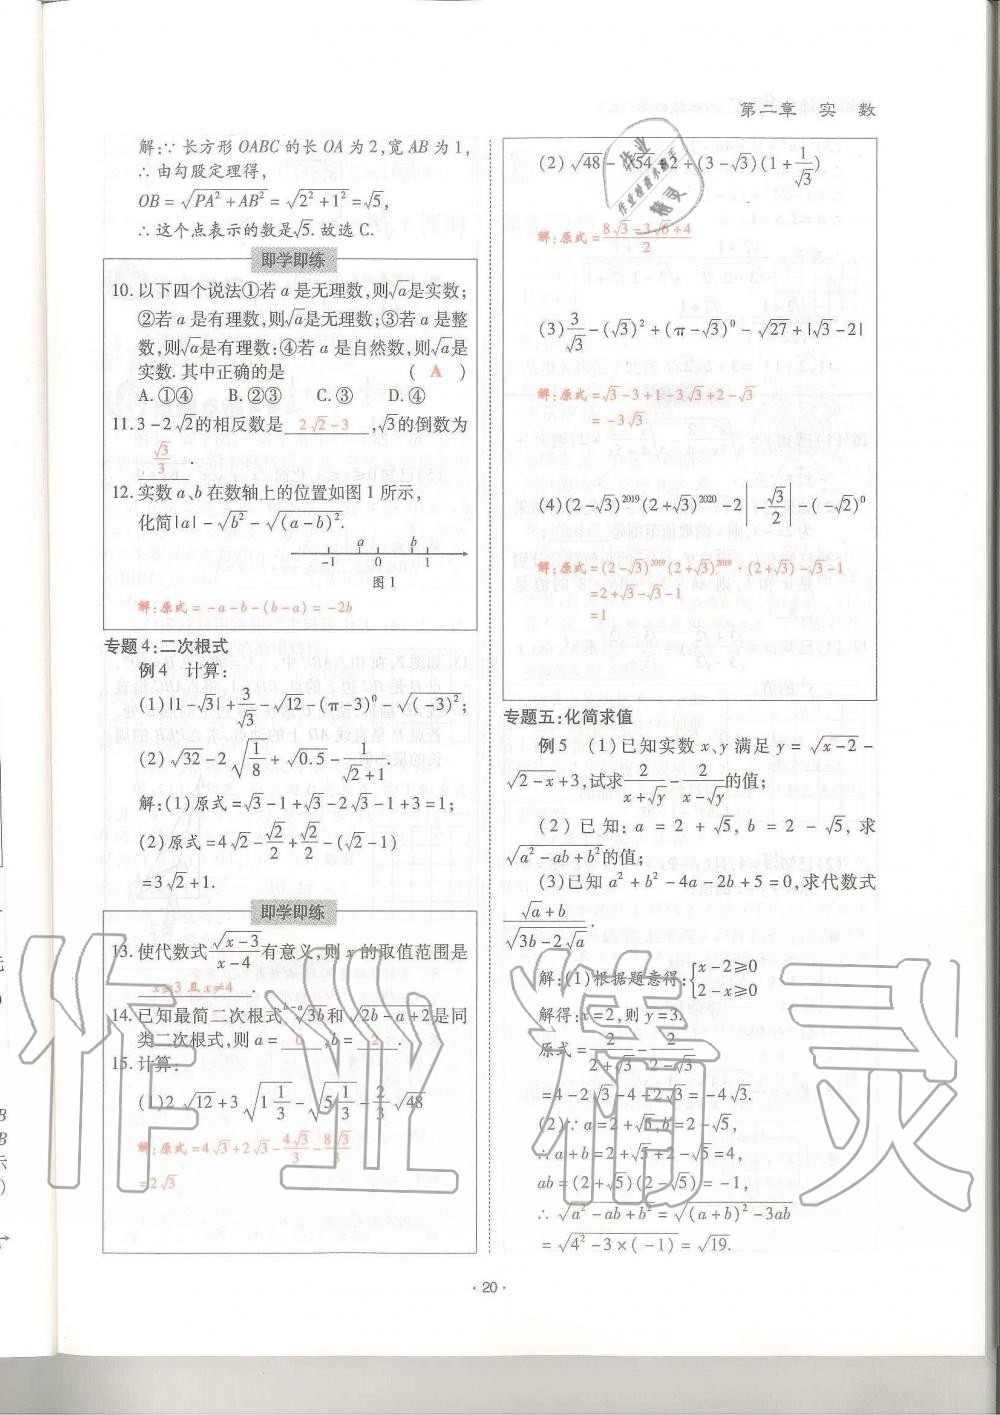 第二章 实 数
解:∵长方形OABC的长OA为2,宽AB为1,
∴由勾股定理得,
OB=√(PA²+AB²)=√(2²+1²)=√5,
∴这个点表示的数是√5.故选C.
即学即练
10.以下四个说法①若a是无理数,则√a是实数;
②若a是有理数,则√a是无理数;③若a是整
数,则√a是有理数:④若a是自然数,则√a是
实数.其中正确的是 ( A )
A.①④ B.②③ C.③ D.④
11.3-2√2的相反数是 2√2-3 ,√3的倒数为
√3/3 .
12.实数a、b在数轴上的位置如图1所示,
化简|a|-√(b²)-√((a-b)²).
a b
-1 0 1
图1
解:原式=-a-b-(b-a)=-2b
专题4:二次根式
例4 计算:
(1)|1-√3|+3/√3-√12-(π-3)⁰-√((-3)²);
(2)√32-2√(1/8)+√0.5-1/(√2+1).
解:(1)原式=√3-1+√3-2√3-1+3=1;
(2)原式=4√2-√2/2+√2/2-(√2-1)
=3√2+1.
即学即练
13.使代数式√(x-3)/(x-4)有意义,则x的取值范围是
x≥3且x≠4 .
14.已知最简二次根式 ᵇ⁻ᵃ√3b和√(2b-a+2)是同
类二次根式,则a= 0 ,b= 2 .
15.计算:
(1)2√12+3√(1 1/3)-√(5 1/3)-2/3√48
解:原式=4√3+2√3-4√3/3-8√3/3
=2√3
(2)√48-√54÷2+(3-√3)(1+1/√3)
解:原式=(8√3-3√6+4)/2
(3)3/√3-(√3)²+(π-√3)⁰-√27+|√3-2|
解:原式=√3-3+1-3√3+2-√3
=-3√3
(4)(2-√3)²⁰¹⁹(2+√3)²⁰²⁰-2|-√3/2|-(-√2)⁰
解:原式=(2-√3)²⁰¹⁹(2+√3)²⁰¹⁹·(2+√3)-√3-1
=2+√3-√3-1
=1
专题五:化简求值
例5 (1)已知实数x、y满足y=√(x-2)-
√(2-x)+3,试求2/(x+√y)-2/(x-√y)的值;
(2)已知:a=2+√5,b=2-√5,求
√(a²-ab+b²)的值;
(3)已知a²+b²-4a-2b+5=0,求代数式
(√a+b)/(√3b-2√a).
解:(1)根据题意得:{x-2≥0
2-x≥0
解得:x=2,则y=3.
原式=2/(2+√3)-2/(2-√3)
=4-2√3-4-2√3=-4√3.
(2)∵a=2+√5,b=2-√5,
∴a+b=2+√5+2-√5=4,
ab=(2+√5)(2-√5)=-1,
∴√(a²-ab+b²)=√((a+b)²-3ab)
=√(4²-3×(-1))=√19.
·20·
作业精灵